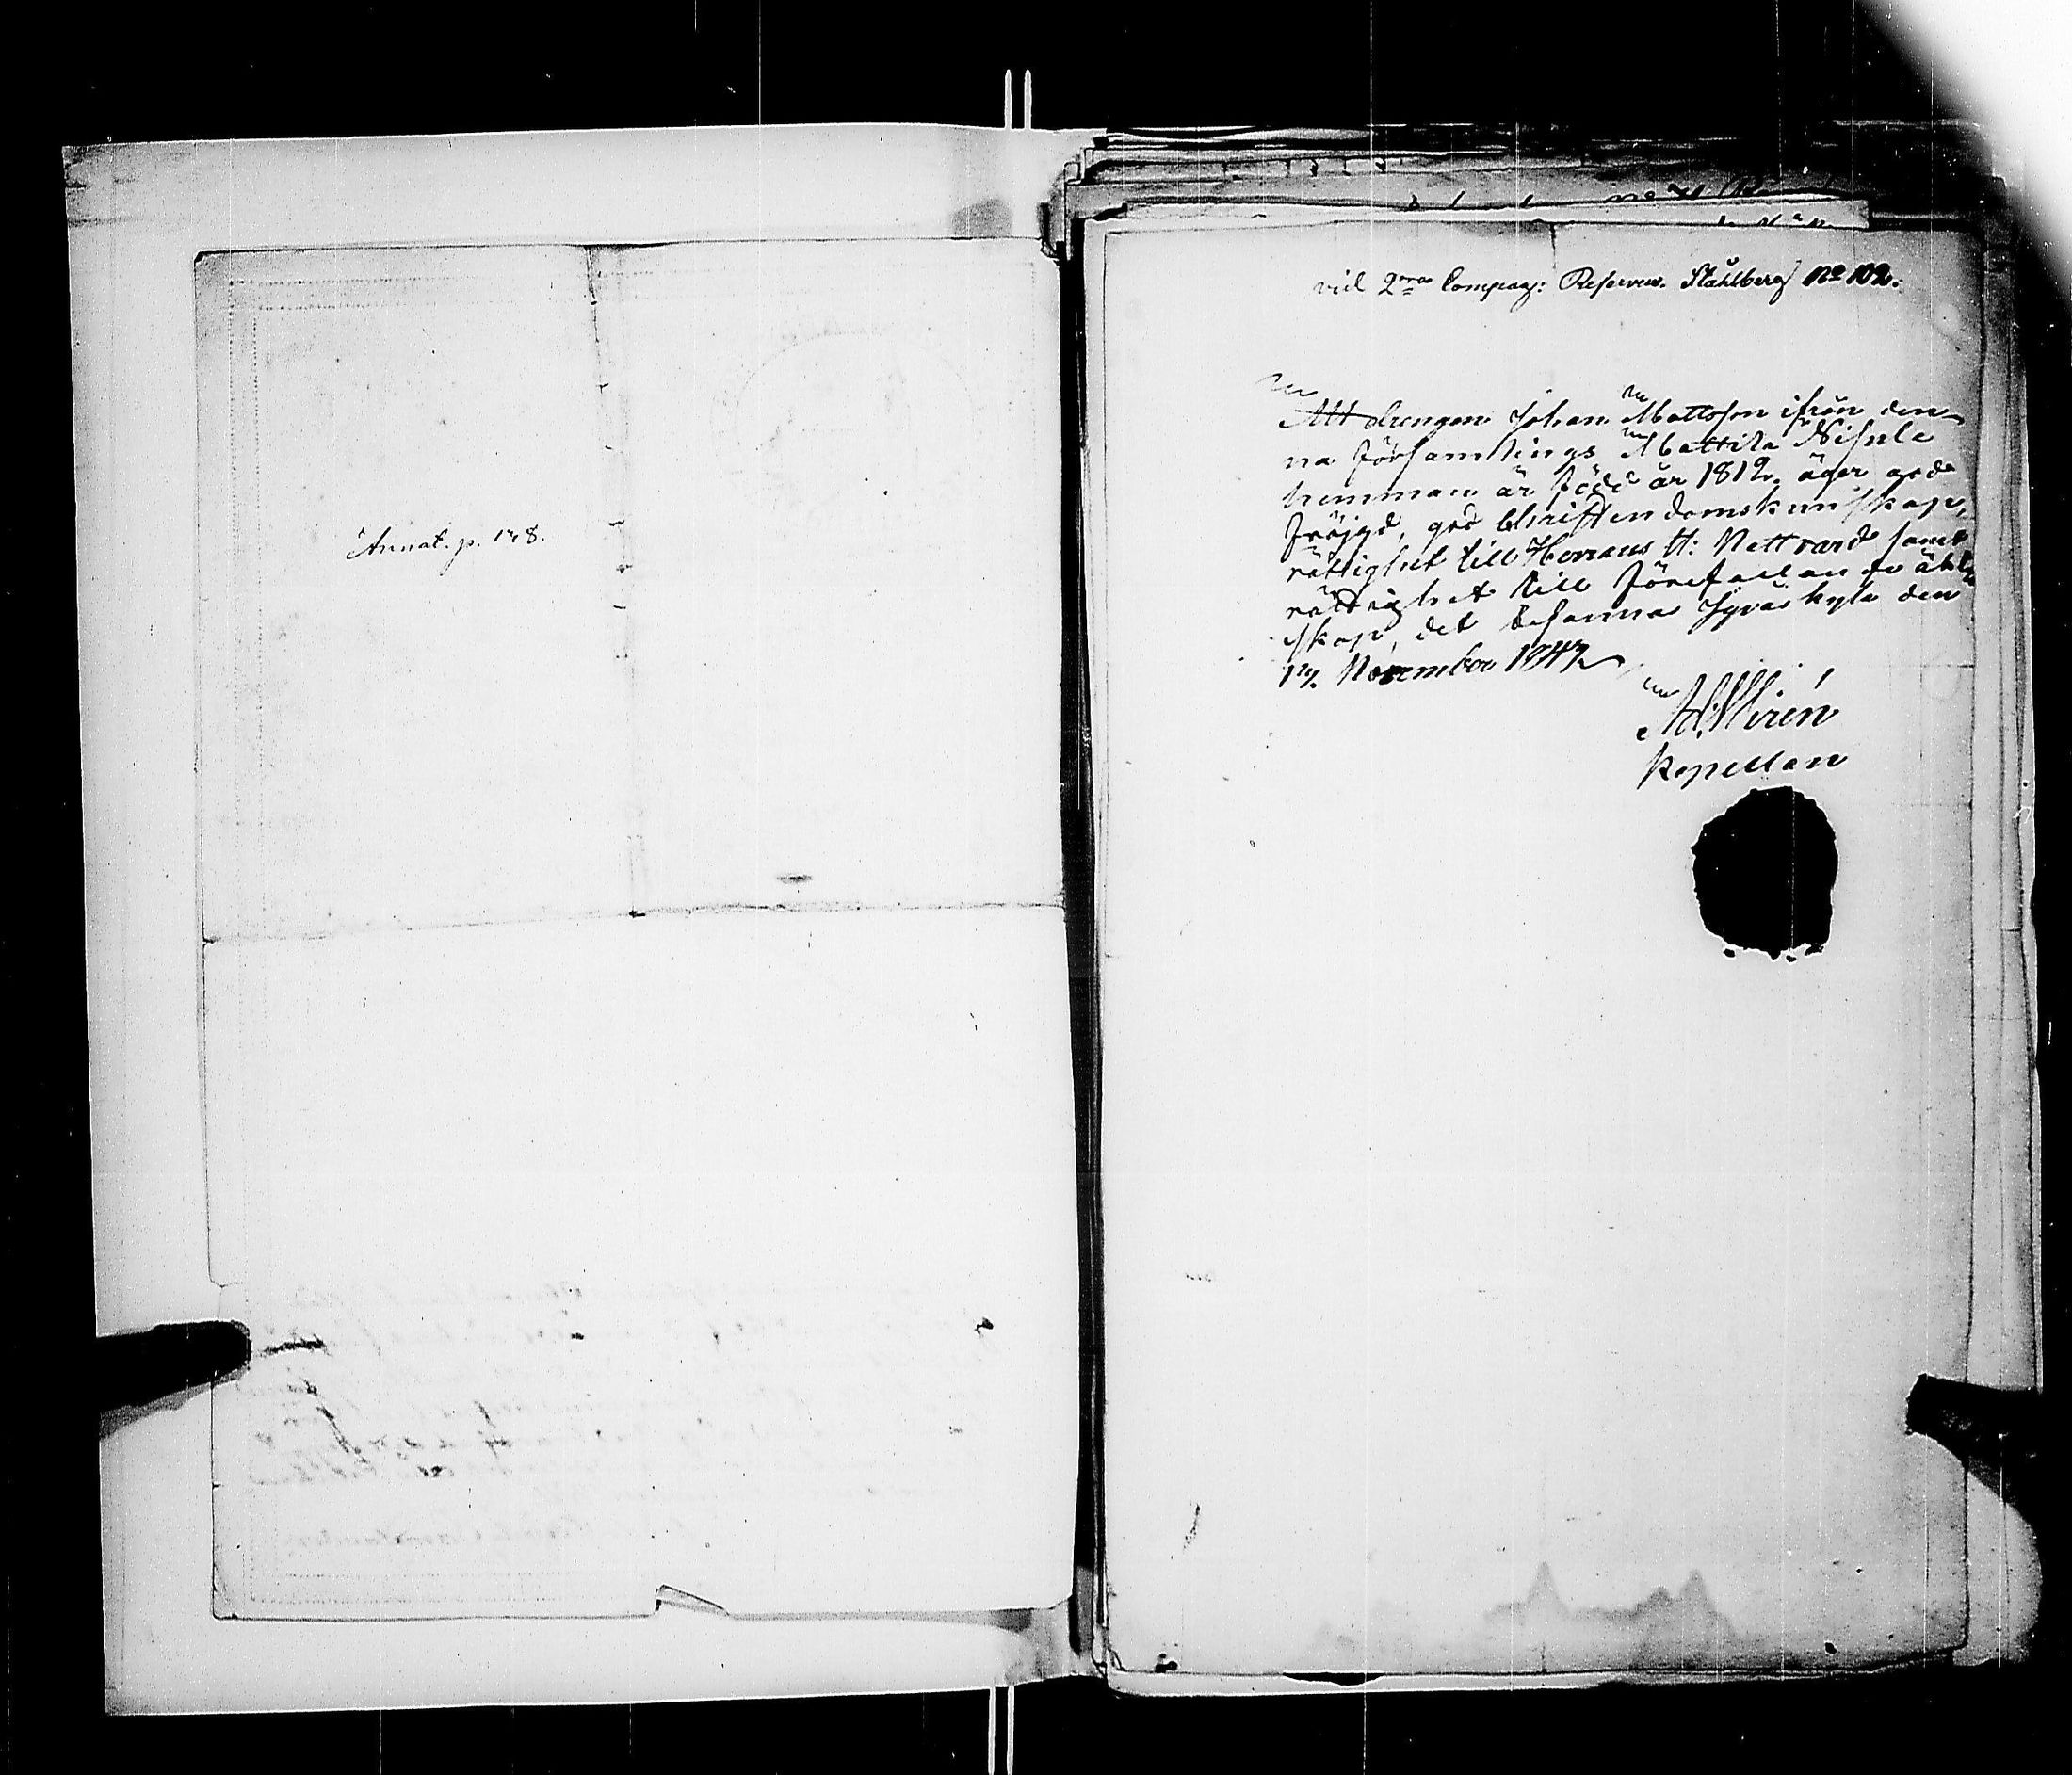 Annot. p. 178.
vid 2dra Compag: Reserven. Ståhlberg No 102.
Att drengen Johan Mattsson ifrån den-
na församlings Mattila Nisula
hemman är född år 1812, äger god
fräjgd, god Christendomskunskap,
rättighet till Herrans H: Nattvard samt
rättighet till förefallande äkten
skap, det besannas Jyväskylä den
17. November 1847.
Kapellan